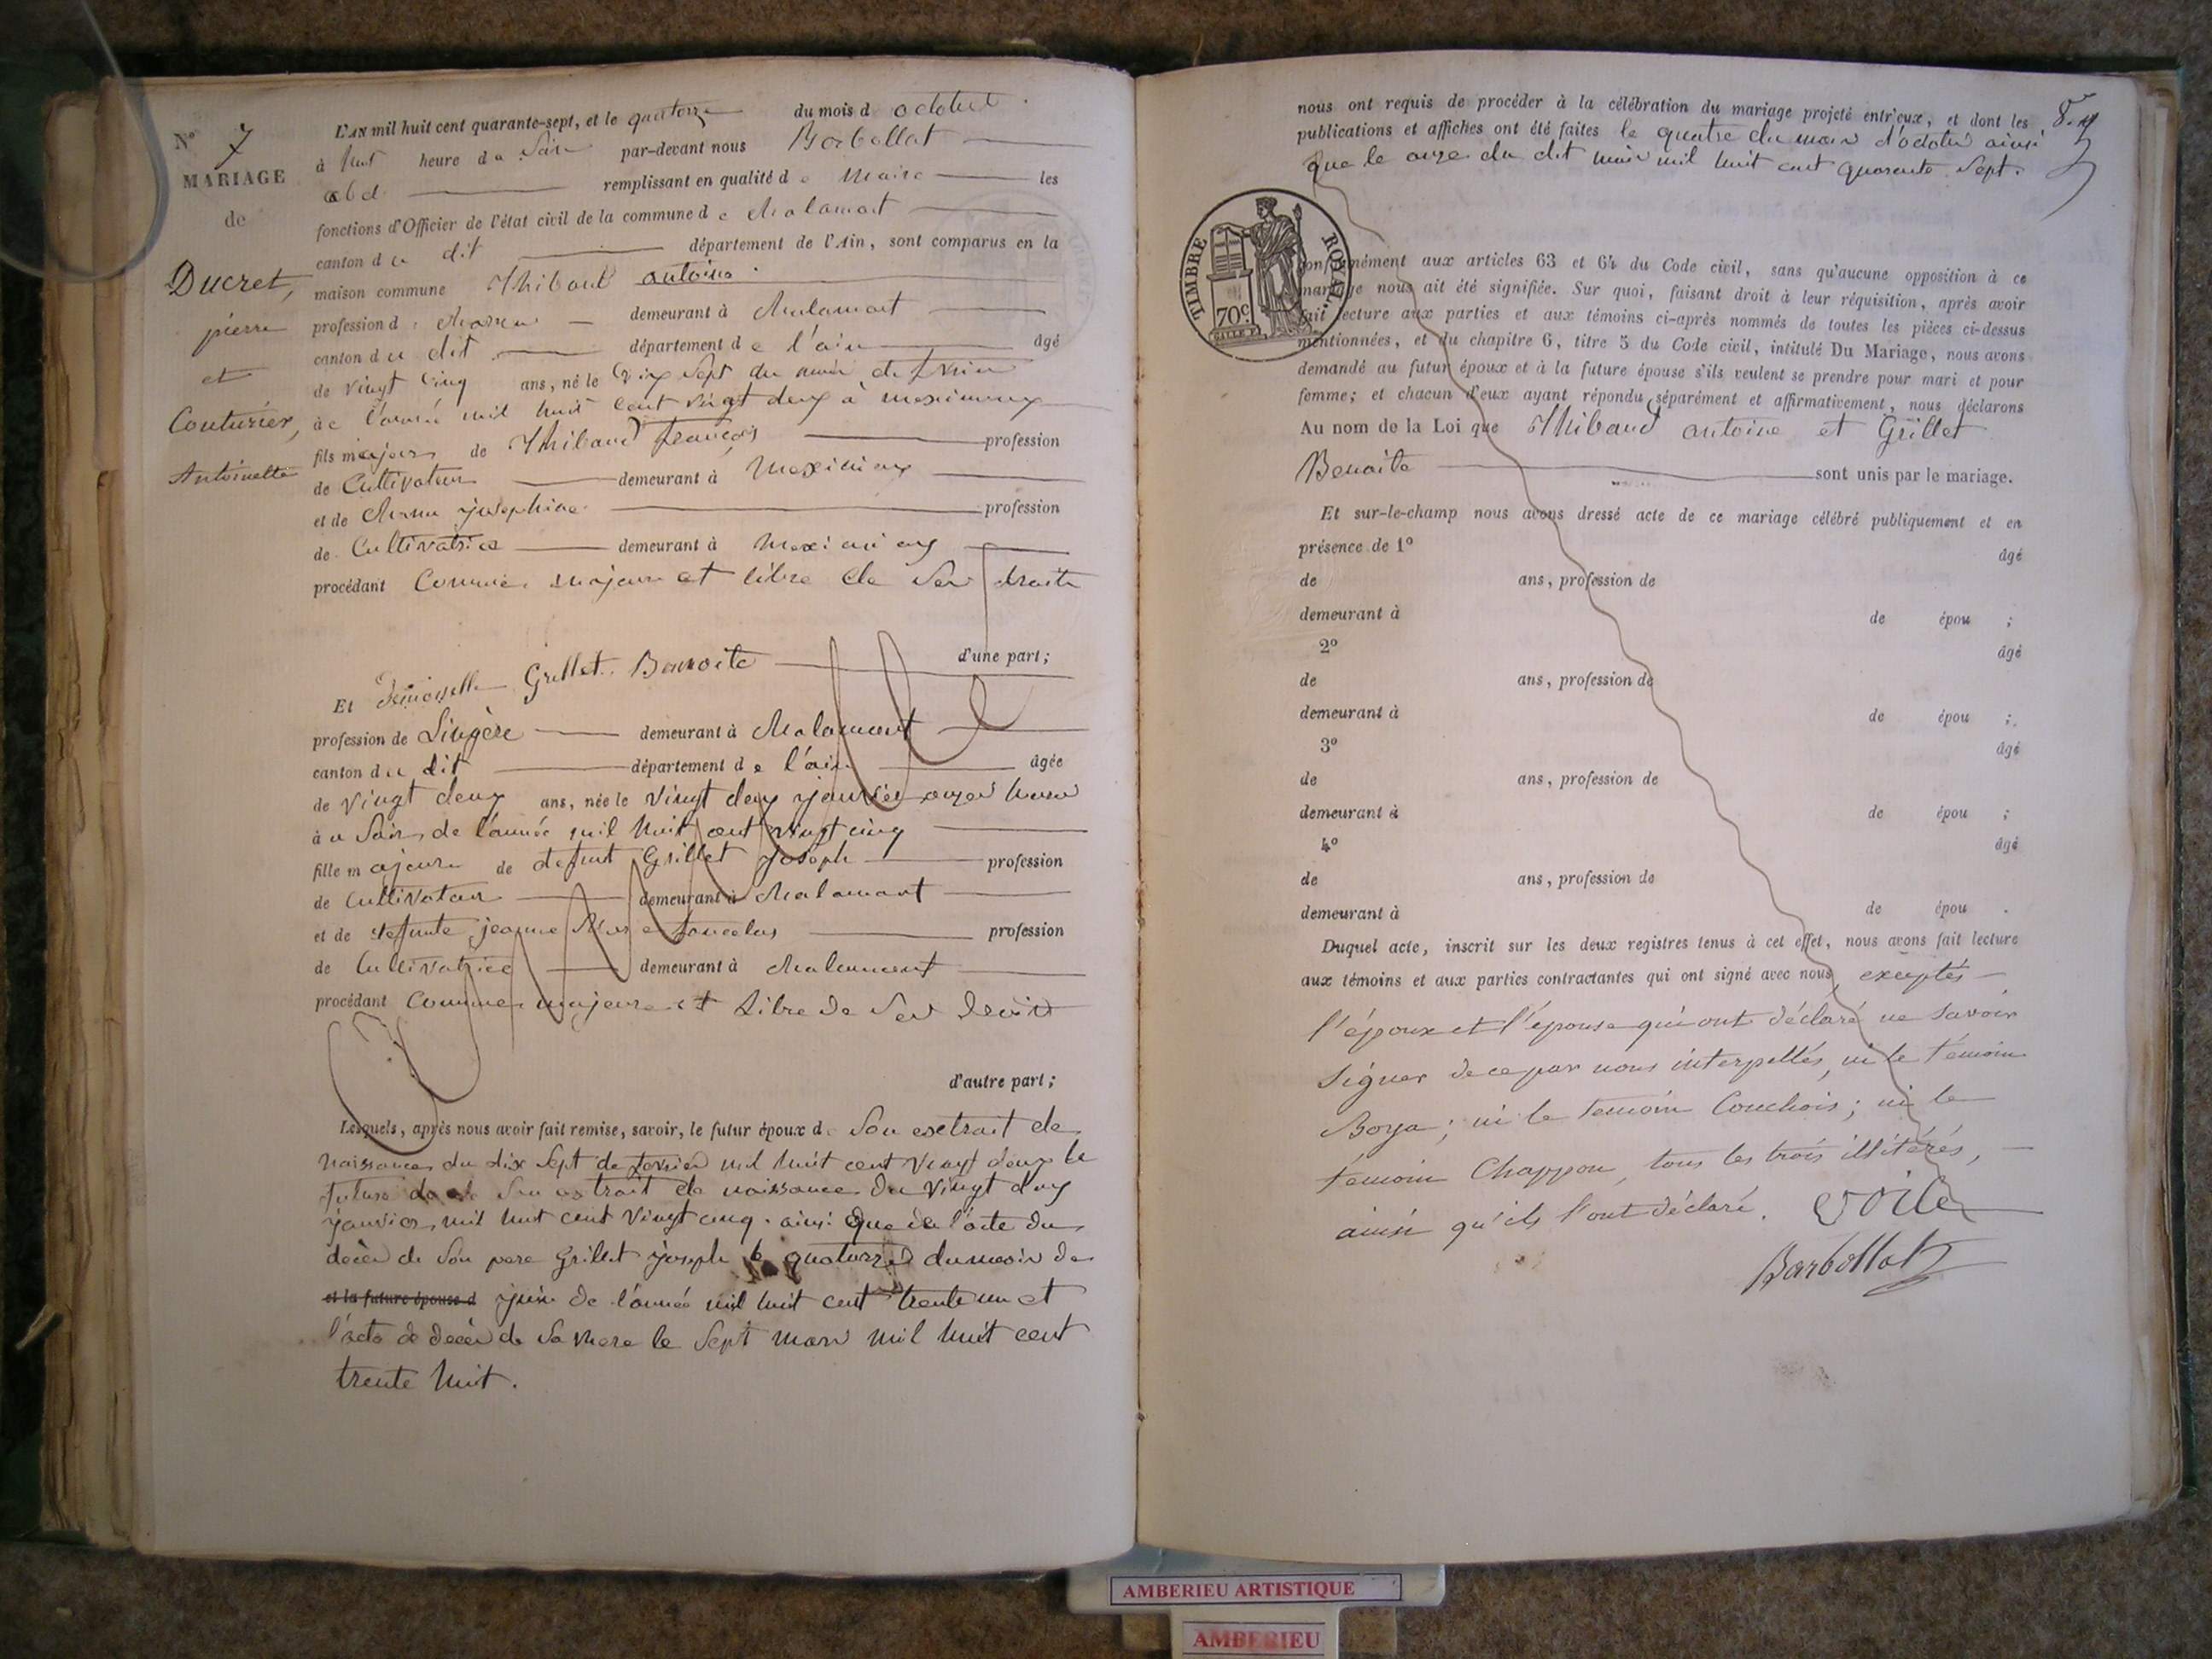 N° 7
MARIAGE
de
Ducret,
pierre
et
Couturier,
Antoinette
L'AN mil huit cent quarante-sept, et le quatorze du mois d octobre
à huit heure du Soir par-devant nous Barbollat
remplissant en qualité de Maire les
fonctions d'Officier de l'état civil de la commune de Chalamont
canton du dit département de l'Ain, sont comparus en la
maison commune Thibaud antoine
profession de demeurant à Chalamont
canton du dit département de l'ain âgé
de vingt cinq ans, né le dix Sept du mois de fevrier
de l'année mil huit cent vingt deux à meximieux
fils majeur de Thibaud françois profession
de Cultivateur demeurant à Meximieux
et de josephine profession
de Cultivatrice demeurant à Meximieux
procédant Comme majeur et libre de Ses droits
d'une part;
Et Demoiselle Grillet Benoite
profession de Lingère demeurant à Chalamont
canton du dit département de l'ain âgée
de vingt deux ans, née le vingt deux janvier onze heures
du Soir de l'année mil huit cent vingt cinq
fille majeure de defunt Grillet Joseph profession
de Cultivateur demeurant à Chalamont
et de defunte jeanne profession
de Cultivatrice demeurant à Chalamont
procédant Comme majeure et Libre de Ses Droits
d'autre part;
Lesquels, après nous avoir fait remise, savoir, le futur époux d Son extrait de
naissance du dix Sept de fevrier mil huit cent vingt deux la
future de Son extrait de naissance du vingt deux
janvier mil huit cent vingt cinq. ainsi que de l'acte du
décès de Son pere Grillet joseph le quatorze du mois de
et la future épouse d juin de l'année mil huit cent trente un et
l'acte de décès de Sa mere le Sept mars mil huit cent
trente huit.
nous ont requis de procéder à la célébration du mariage projeté entr'eux, et dont les
publications et affiches ont été faites le quatre du mois d'octobre ainsi
que le onze du dit mois mil huit cent quarante Sept.
TIMBRE ROYAL
70c
conformément aux articles 63 et 64 du Code civil, sans qu'aucune opposition à ce
mariage nous ait été signifiée. Sur quoi, faisant droit à leur réquisition, après avoir
fait lecture aux parties et aux témoins ci-après nommés de toutes les pièces ci-dessus
mentionnées, et du chapitre 6, titre 5 du Code civil, intitulé Du Mariage, nous avons
demandé au futur époux et à la future épouse s'ils veulent se prendre pour mari et pour
femme; et chacun d'eux ayant répondu séparément et affirmativement, nous déclarons
Au nom de la Loi que Thibaud antoine et Grillet
Benoite sont unis par le mariage.
Et sur-le-champ nous avons dressé acte de ce mariage célébré publiquement et en
présence de 1° âgé
de ans, profession de
demeurant à de épou ;
2° âgé
de ans, profession de
demeurant à de épou ;
3° âgé
de ans, profession de
demeurant à de épou ;
4° âgé
de ans, profession de
demeurant à de épou .
Duquel acte, inscrit sur les deux registres tenus à cet effet, nous avons fait lecture
aux témoins et aux parties contractantes qui ont signé avec nous, exceptés
l'époux et l'épouse qui ont déclaré ne savoir
signer de ce par nous interpellés, ni le témoin
Boya; ni le temoin Couchois; ni le
témoin Chappon, tous les trois illitérés,
ainsi qu'ils l'ont déclaré.
Barbollat
AMBERIEU ARTISTIQUE
AMBERIEU